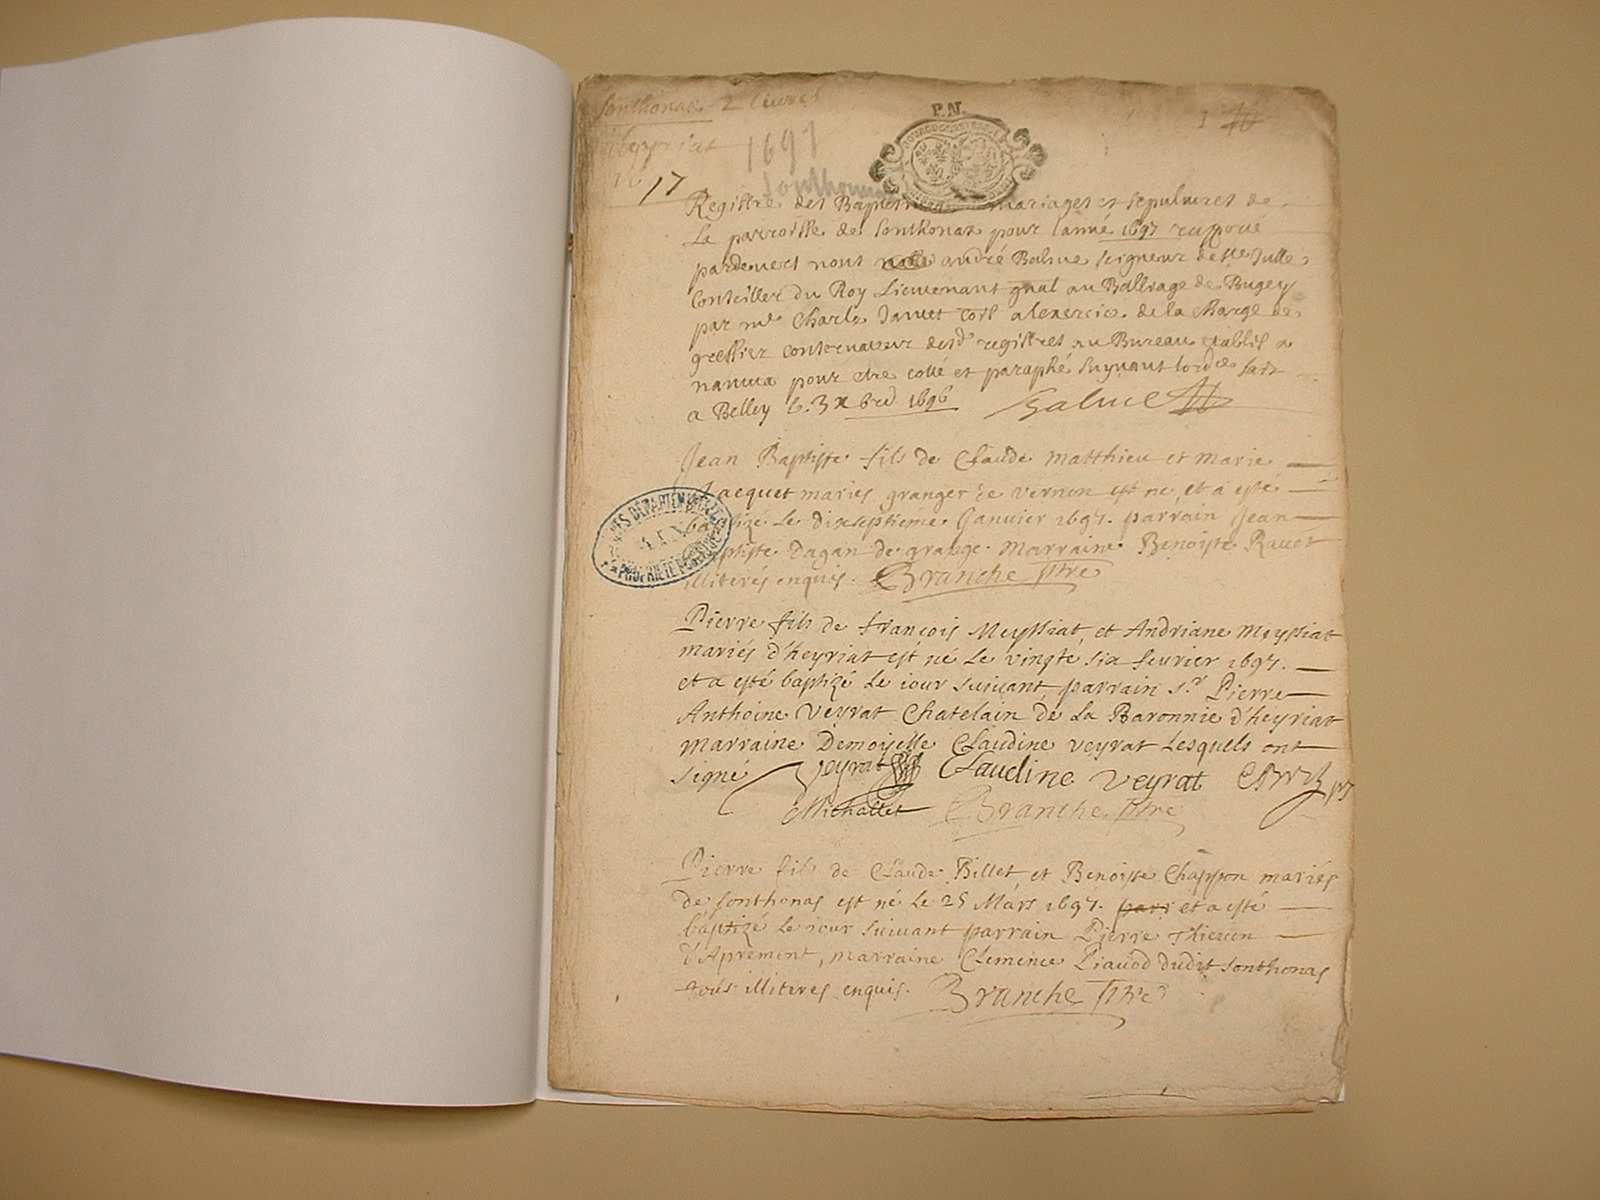 Sonthonas 2 livres
1697
17
Sonthonnax
P.N.
1
Registre des Baptesmes mariages et sepulures de
Le parroisse de Sonthonax pour l'anné 1697
pardevers nous André Balme seigneur de Ste Julle
Conseiller du Roy Lieutenant gnal au Balliage de Bugey
par me Charles Janet a lexercice de la charge de
greffier conservateur desd registres au Bureau establis a
nantua pour etre cotté et paraphé suyvant lordce fait
a Belley le 3 xbre 1696 Balme
Jean Baptiste fils de Claude Matthieu et Marie
Jacquet mariés granger de Vernon est né et a esté
baptizé Le dixseptieme Janvier 1697. parrain Jean
Baptiste Dagan de grange. Marraine Benoiste Ravet
illiterés enquis. Branche ptre
Pierre fils de François Meyssiat, et Andriane Meyssiat
mariés d'heyriat est né Le vingte six fevrier 1697.
et a esté baptizé Le iour suivant, parrain Sr. Pierre
Anthoine Veyrat Chatelain de La Baronnie d'heyriat
Marraine Demoiselle Claudine Veyrat Lesquels ont
signé Veyrat Claudine Veyrat
Michallet Branche ptre
Pierre fils de Claude Billet et Benoiste Chappon mariés
de Sonthonas est né Le 25 Mars 1697. parr et a esté
baptizé Le iour suivant parrain Pierre
d'Apremont, marraine Clemence Piavod dudit Sonthonas
tous illiteres enquis. Branche ptre
ARCHIVES DÉPARTEMENTALES
AIN
PROPRIÉTÉ PUBLIQUE